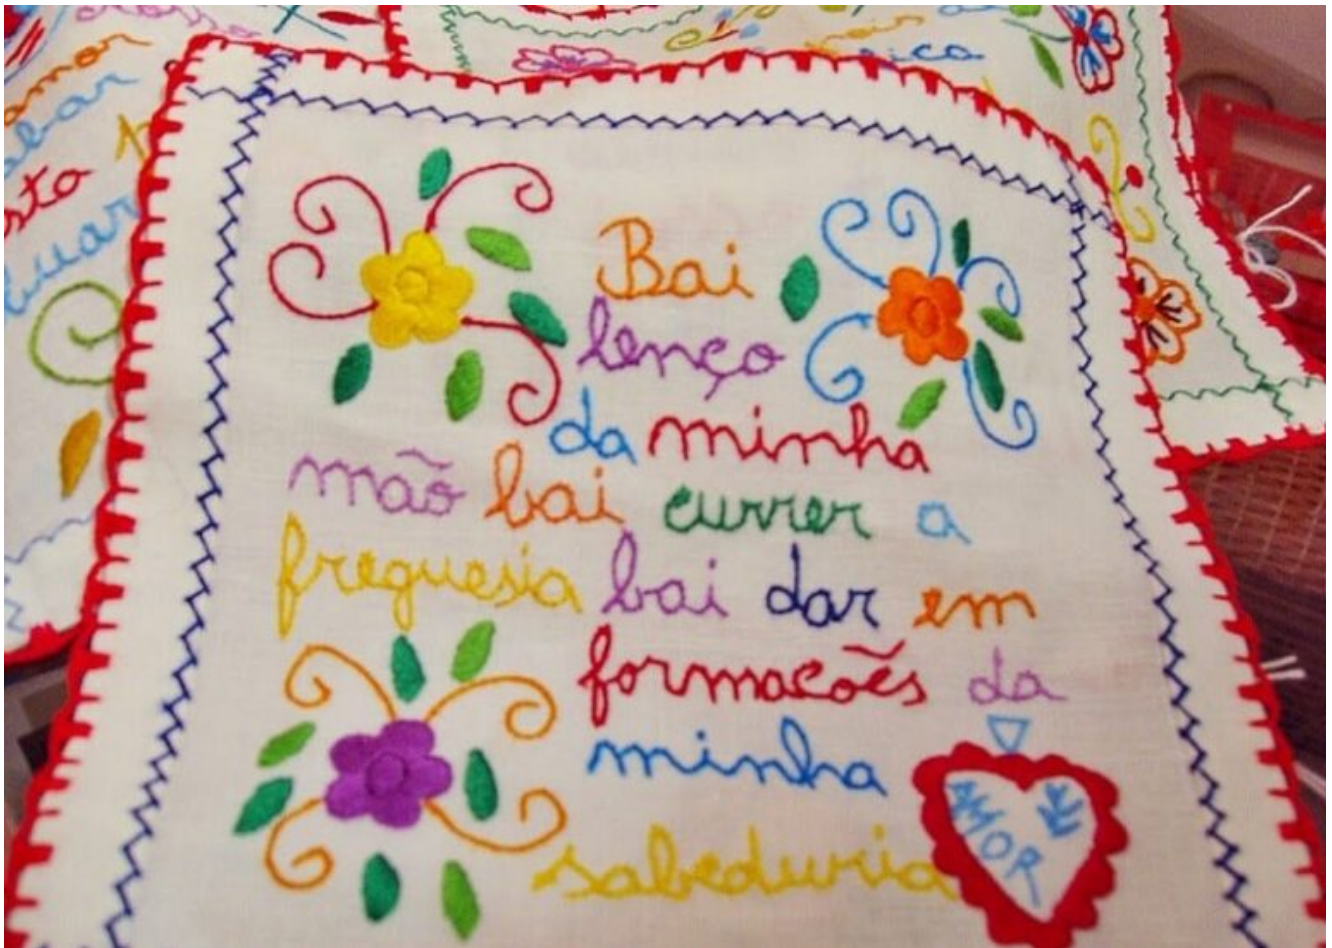 amor
sto
Bai
lenço
da minha
mão bai currer a
freguesia bai dar em
formacões da
minha
sabeduria
AMOR